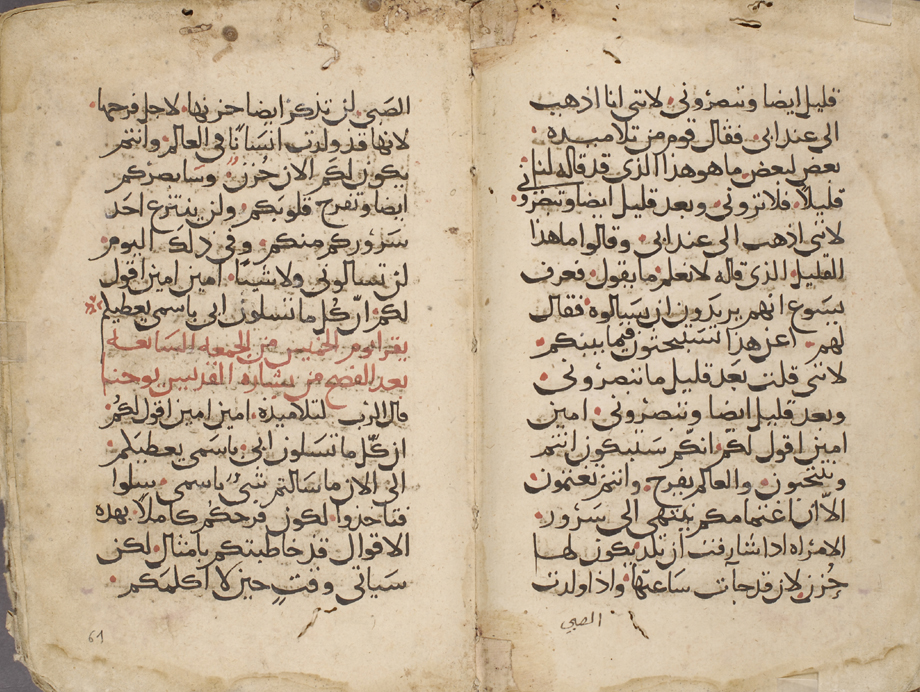 قليل ايضا وتنصروني لاني انا اذهب
الى عند ابي فقال قوم من تلاميده
بعض لبعض ما هو هذا الذي قد قاله لنا اني
قليلاً فلا تروني وبعد قليل ايضا وتنصرو
لاني اذهب الى عند ابي وقالوا ما هذا
القليل الذي قاله لا نعلم ما يقول فعرف
يسوع انهم يريدون ان يسالوه فقال
لهم اعن هذا تتبيحتون فيما بينكم
لاني قلت بعد قليل ما تنصروني
وبعد قليل ايضا وتنصروني امين
امين اقول لكم انكم ستبكون انتم
وتنحبون والعالم يفرح وانتم تغتمون
الا ان اغتمامكم ينتهي الى سرور
الامراه اذا شارفت ان تلد يكون لها
حزن لان قد جات ساعتها واذا ولدت
الصبي
الصبي لن تذكر ايضا حزنها لاجل فرحها
لانها قد ولدت انسانا في العالم وانتم
يكون لكم الان حُزن وسابصركم
ايضا وتفرح قلوبكم ولن ينتزع احد
سروركم منكم وفي ذلك اليوم
لن تسالوني ولا شيئا امين امين اقول
لكم ان كُل ما تسلون ابي باسمي يعطيكم
يقرا يوم الخميس من الجمعه السابعه
بعد الفصح من بشاره القديس يوحنا
قال الرب لتلاميده امين امين اقول لكم
ان كُل ما تسلون ابي باسمي يعطيكم
الى الان ما سالتم شيء باسمي سلوا
فتاخذوا لكون فرحكم كاملاً بهده
الاقوال قد خاطبتكم بامثال لكن
سياتي وقتٍ حين لا اكلمكم
61